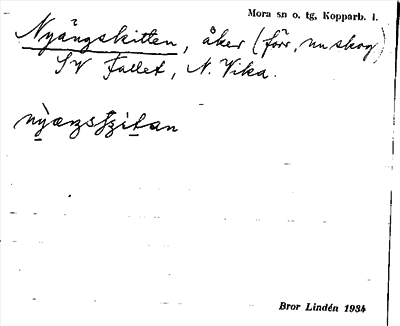 Mora sn o. tg, Kopparb. l.
Nyängskitten, åker (förr, nu skog)
SV Fallet, N. Vika.
Bror Lindén 1934